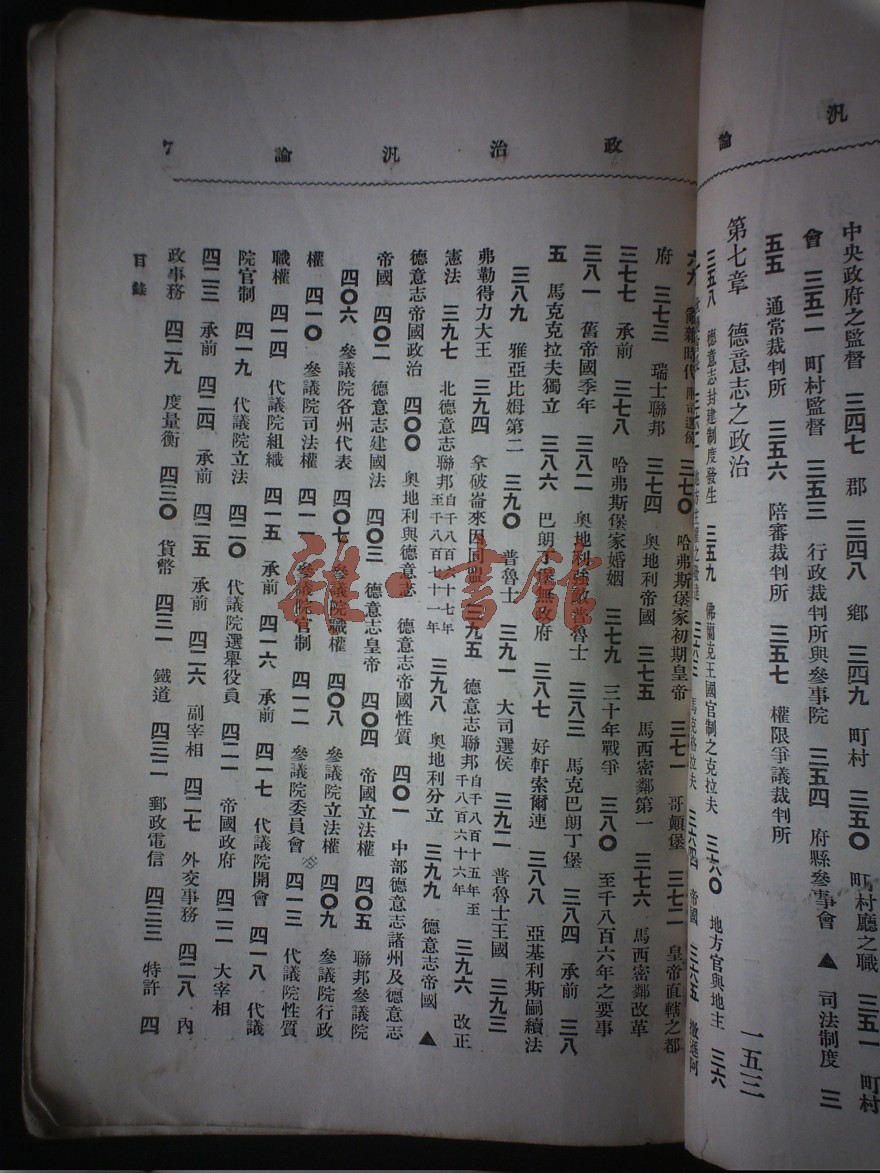 汎論
中央政府之監督 三四七 郡 三四八 鄉 三四九 町村 三五〇 町村廳之職 三五一 町村
會 三五二 町村監督 三五三 行政裁判所與參事院 三五四 府縣參事會 ▲ 司法制度 三
五五 通常裁判所 三五六 陪審裁判所 三五七 權限爭議裁判所
第七章 德意志之政治 一五三
三五八 德意志封建制度發生 三五九 佛蘭克王國官制之克拉夫 三六〇 地方官與地主 三六
馬克格拉夫 三六四 帝國 三六五
政治汎論 7
三七〇 哈弗斯堡家初期皇帝 三七一 哥顛堡 三七二 皇帝直轄之都
府 三七三 瑞士聯邦 三七四 奧地利帝國 三七五 馬西密鄰第一 三七六 馬西密鄰改革
三七七 承前 三七八 哈弗斯堡家婚姻 三七九 三十年戰爭 三八〇 至千八百六年之要事
三八一 舊帝國季年 三八二 奧地利強敵普魯士 三八三 馬克巴朗丁堡 三八四 承前 三八
五 馬克克拉夫獨立 三八六 巴朗丁堡無政府 三八七 好軒索爾連 三八八 亞基利斯嗣續法
三八九 雅亞比姆第二 三九〇 普魯士 三九一 大司選侯 三九二 普魯士王國 三九三
弗勒得力大王 三九四 拿破崙來因同盟 三九五 德意志聯邦自千八百十五年至千八百六十六年 三九六 改正
憲法 三九七 北德意志聯邦自千八百六十七年至千八百七十一年 三九八 奧地利分立 三九九 德意志帝國 ▲
德意志帝國政治 四〇〇 奧地利與德意志 德意志帝國性質 四〇一 中部德意志諸州及德意志
帝國 四〇二 德意志建國法 四〇三 德意志皇帝 四〇四 帝國立法權 四〇五 聯邦參議院
四〇六 參議院各州代表 四〇七 參議院職權 四〇八 參議院立法權 四〇九 參議院行政
權 四一〇 參議院司法權 四一一 參議院官制 四一二 參議院委員會 四一三 代議院性質
職權 四一四 代議院組織 四一五 承前 四一六 承前 四一七 代議院開會 四一八 代議
院官制 四一九 代議院立法 四二〇 代議院選舉役員 四二一 帝國政府 四二二 大宰相
四二三 承前 四二四 承前 四二五 承前 四二六 副宰相 四二七 外交事務 四二八 內
政事務 四二九 度量衡 四三〇 貨幣 四三一 鐵道 四三二 郵政電信 四三三 特許 四
目錄
雜·書館